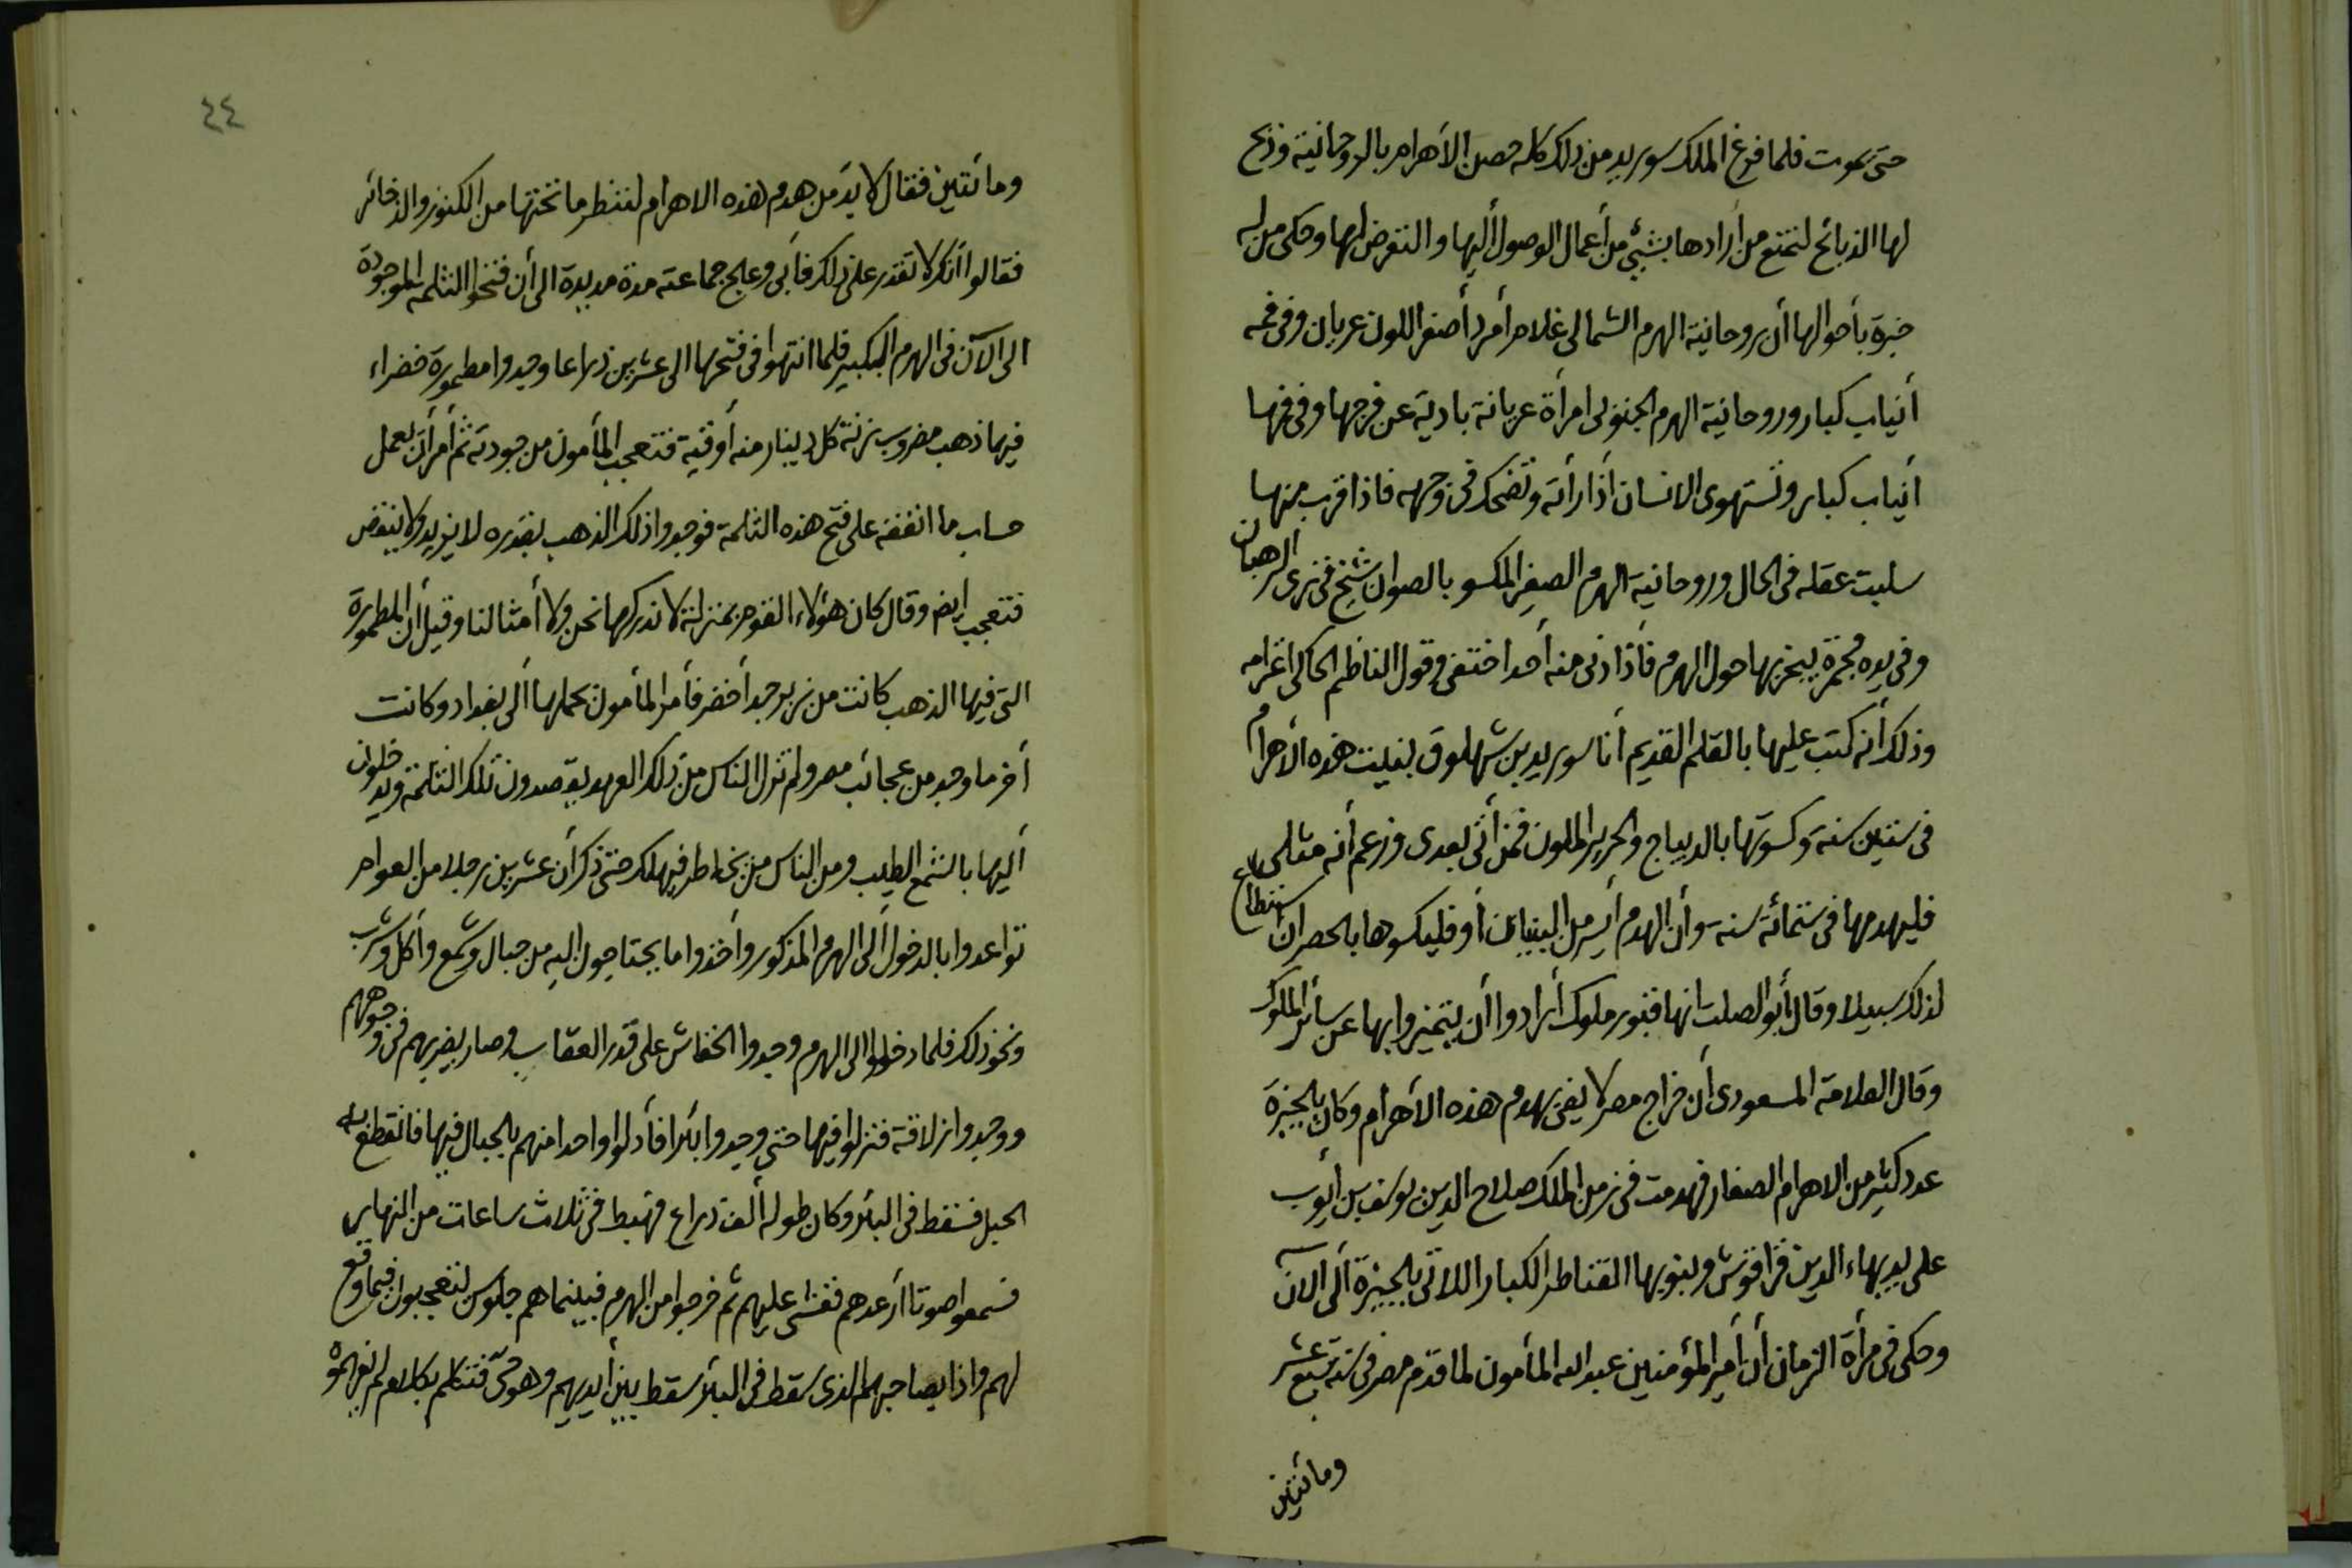 حتى يموت فلما فرغ الملك سوريد من ذلك كله حصن الأهرام بالروحانية وذبح
لها الذبائح لتمتنع من أرادها بشيئ من أعمال الوصول أليها والتعرض لها وحكى من له
خبرة بأحوالها أن روحانية الهرم الشمالى غلام أمرد أصفر اللون عريان وفى فمه
أنياب كبار وروحانية الهرم الجنوبى امرأة عريانة بادية عن فرجها وفى فمها
أنياب كبار وتستهوى الانسان أذا رأته وتضحك فى وجهه فاذا قرب منها
سلبت عقله فى الحال وروحانية الهرم الصغير المكسو بالصوان شيخ فى زى الرهبان
وفى يده مجمرة يبخر بها حول الهرم فأذا دنى منه أحد اختفى وقول الناظم الحاكى اغرامه
وذلك أنه كتب عليها بالقلم القديم أنا سوريد بن شهلوق بنيت هذه الأهرام
فى ستين سنة وكسوتها بالديباج والحرير الملون فمن أتى بعدى وزعم أنه مثلى
فليهدمها فى ستمائة سنة وأن الهدم أيسر من البنيان أو فليكسوها بالحصر ان استطاع
لذلك سبيلا وقال أبو الصلت انها قبور ملوك أرادوا أن يتميزوا بها عن سائر الملوك
وقال العلامة المسعودى أن خراج مصر لا يفى بهدم هذه الأهرام وكان بالجيزة
عدد كثير من الاهرام الصغار فهدمت فى زمن الملك صلاح الدين يوسف بن أيوب
على يد بهاء الدين قراقوش وبنو بها القناطر الكبار اللاتى بالجيزة ألى الآن
وحكى فى مرأة الزمان أن أمير المؤمنين عبد الله المأمون لما قدم مصر فى سنة سبع عشر
ومائتين
٤٤
ومائتين فقال لا بد من هدم هذه الاهرام لننظر ما تحتها من الكنوز والذخائر
فقالوا أنك لا تقدر على ذلك فأبى وعلج جماعته مدة مديدة الى أن فتحوا الثلمه الموجودة
الى الآن فى الهرم الكبير فلما انتهوا فى فتحها الى عشرين ذراعا وجدوا مطمورة خضراء
فيها ذهب مضروب زنة كل دينار منه أوقية فتعجب المأمون من جودته ثم أمر أن يعمل
حساب ما انفقه على فتح هذه الثلمة فوجدوا ذلك الذهب بقدره لا يزيد ولا ينقص
فتعجب ايضا وقال كان هؤلاء القوم بمنزلة لا ندركها نحن ولا أمثالنا وقيل أن المطمورة
التى فيها الذهب كانت من زبرجد أخضر فأمر المأمون بحملها ألى بغداد وكانت
أخر ما وجد من عجائب مصر ولم تزل الناس من ذلك العهد يقصدون تلك الثلمة ويدخلون
أليها بالشمع الطيب ومن الناس من يخاطر فيهلك حتى ذكر أن عشرين رجلا من العوام
تواعدوا بالدخول ألى الهرم المذكور وأخذوا ما يحتاجون اليه من حبال وشمع وأكل وشرب
ونحو ذلك فلما دخلوا الى الهرم وجدوا الخفاش على قدر العقاب وصار يضربهم فى وجوههم
ووجدوا زلاقة فنزلوا فيها حتى وجدوا بئرا فأدلوا واحدا منهم بالحبال فيها فانقطع به
الحبل فسقط فى البئر وكان طوله ألف ذراع فهبط فى ثلاث ساعات من النهار
فسمعوا صوتا أرعدهم فغشى عليهم ثم خرجوا من الهرم فبينما هم جلوس لتعجبون فيما وقع
لهم واذا بصاحبهم الذى سقط فى البئر سقط بين أيديهم وهو حى فتكلم بكلام لم نفهموه